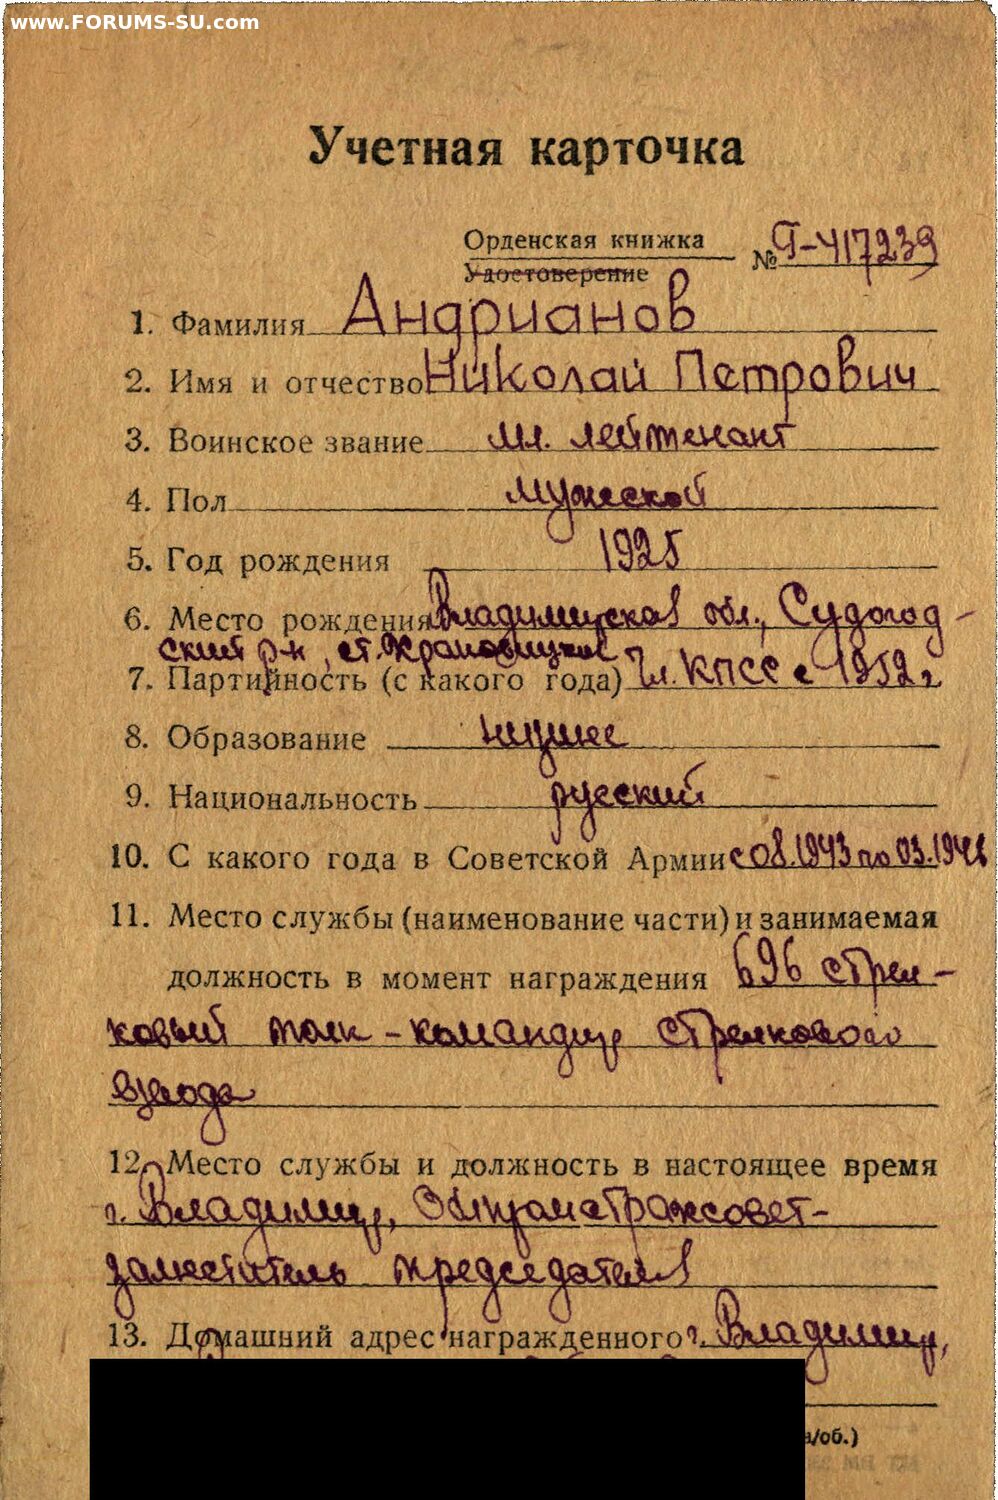 www.FORUMS-SU.com
Учетная карточка
Орденская книжка
Удостоверение
№ Г-417239
1. Фамилия Андрианов
2. Имя и отчество Николай Петрович
3. Воинское звание мл. лейтенант
4. Пол мужской
5. Год рождения 1925
6. Место рождения Владимирская обл., Судогод-
ский р-н, ст.
7. Партийность (с какого года) Чл. КПСС с 1952 г
8. Образование низшее
9. Национальность русский
10. С какого года в Советской Армии с 08.1943 по 03.
11. Место службы (наименование части) и занимаемая
должность в момент награждения 696 стрел-
ковый полк - командир стрелкового
взвода
12. Место службы и должность в настоящее время
г. Владимир, Облпромстрахсовет-
заместитель председателя
13. Домашний адрес награжденного г. Владимир,
/об.)